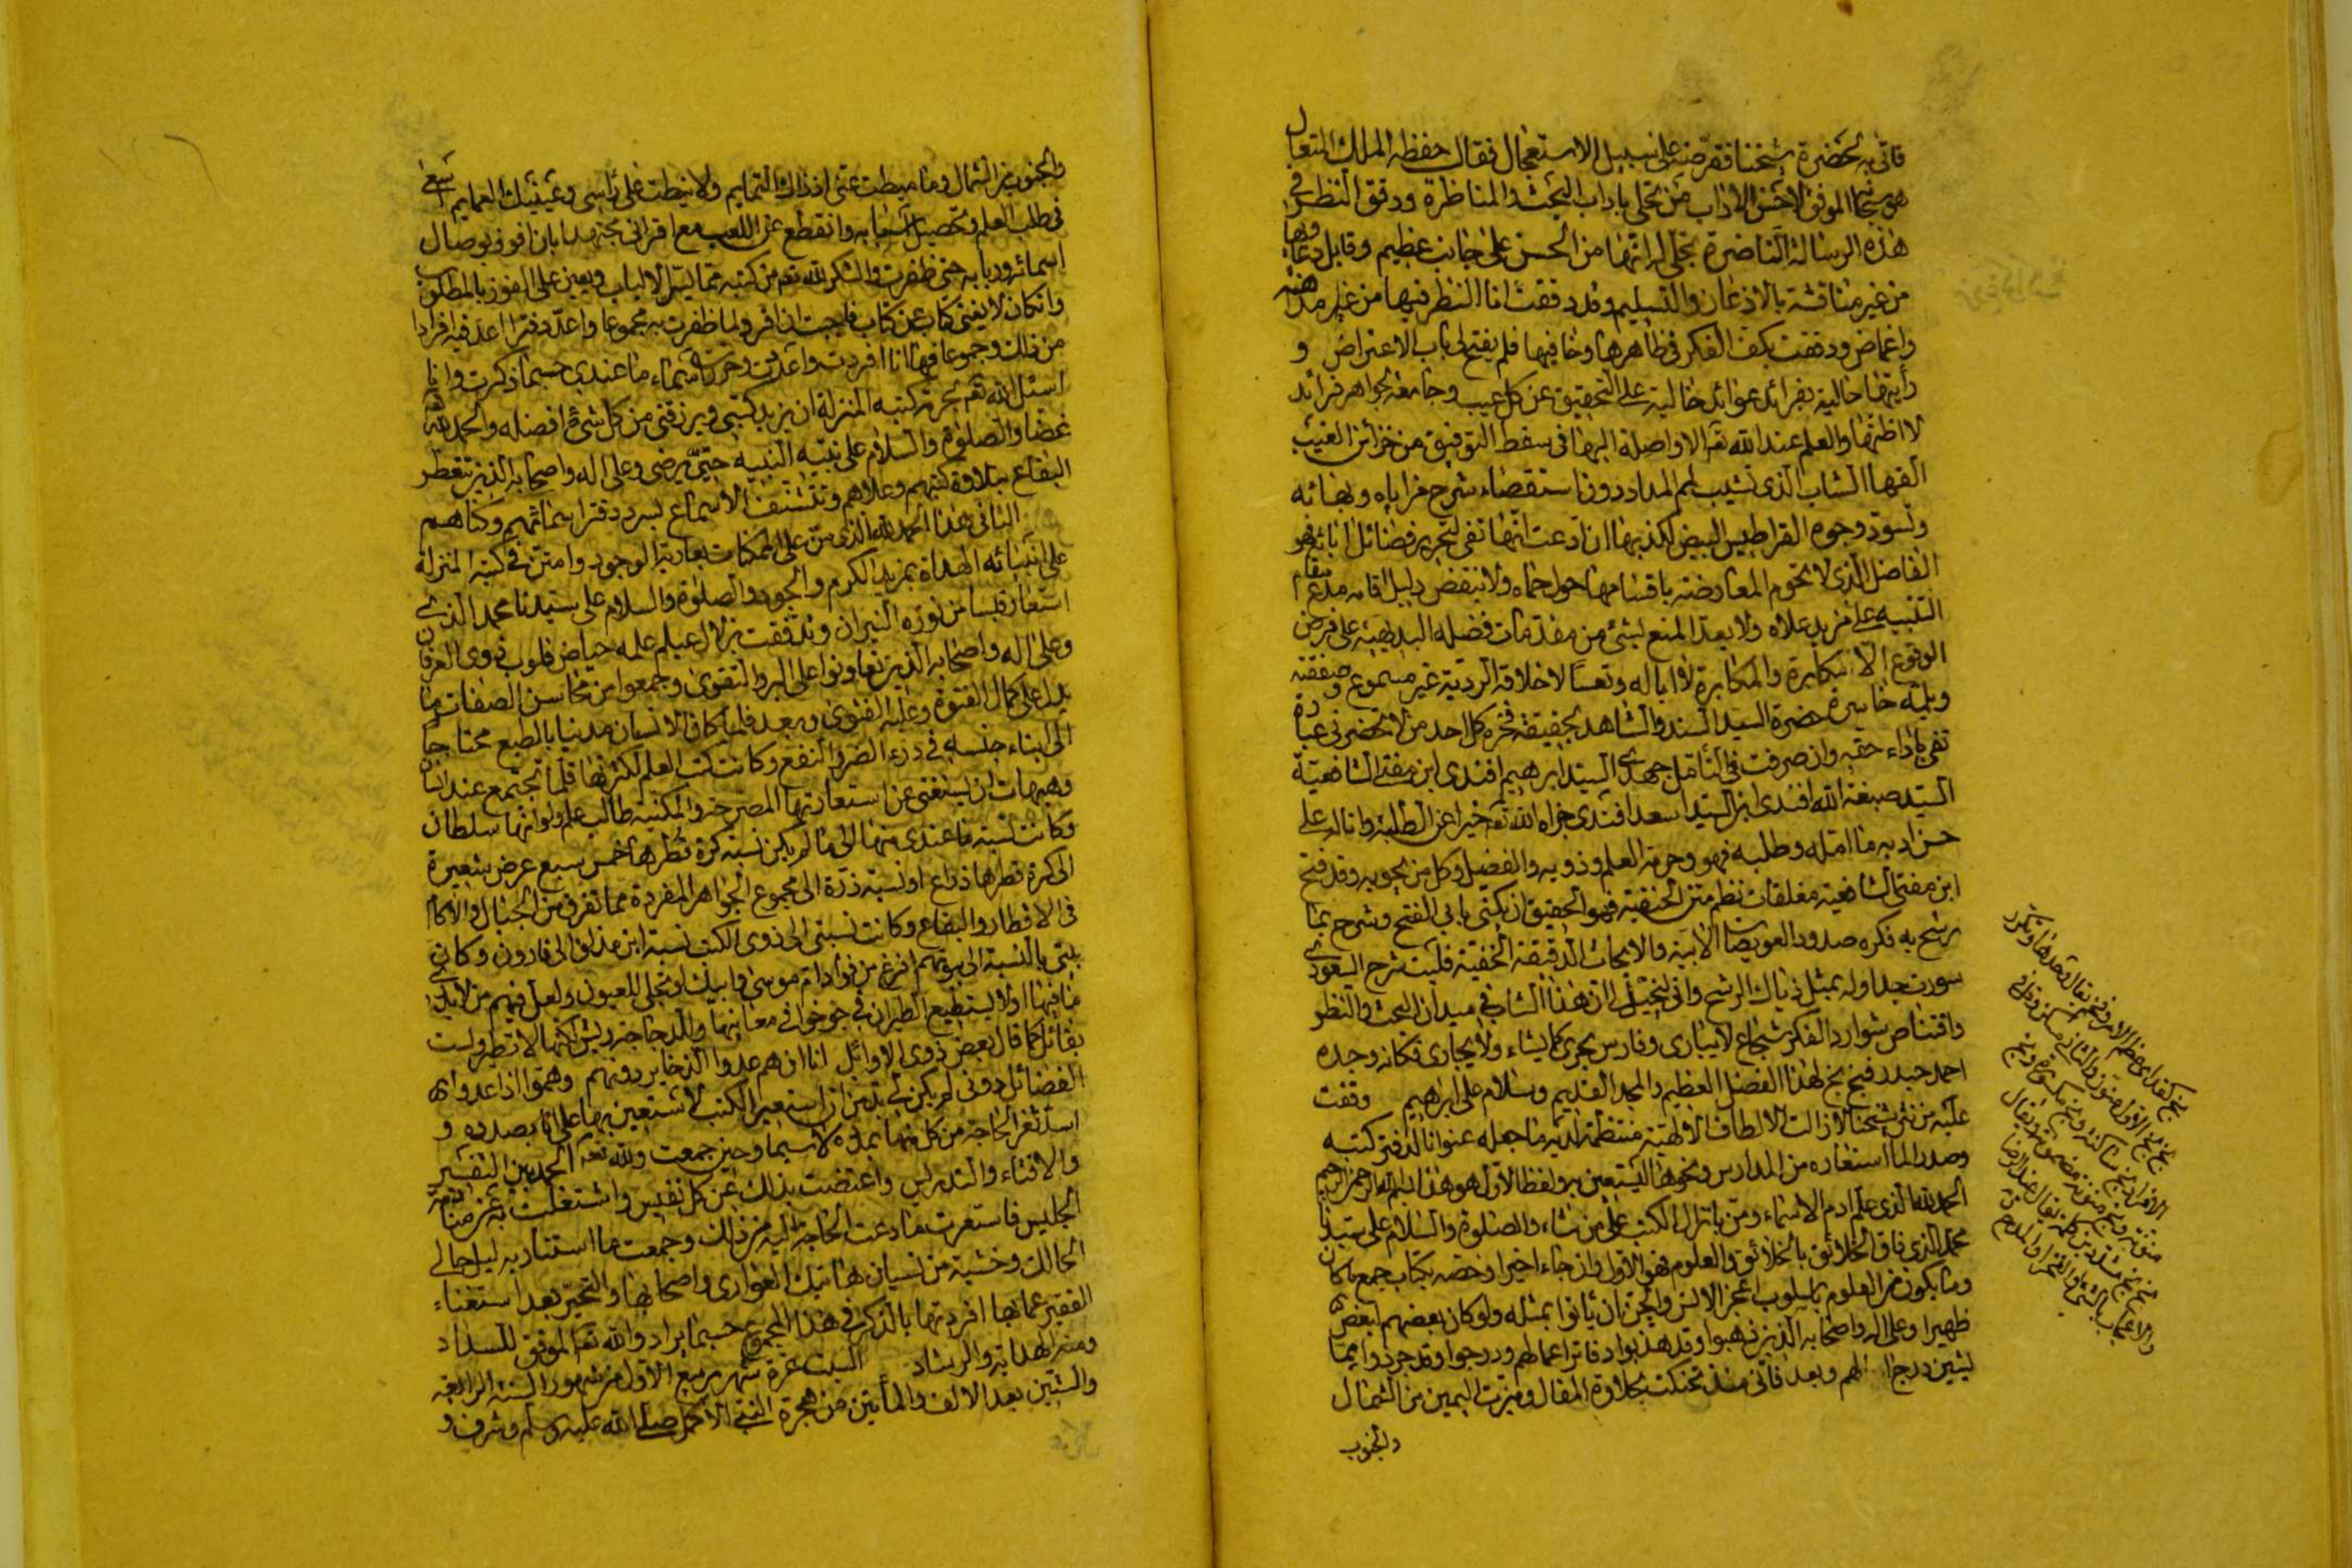 فاتى به لحضرة شيخنا فقرضه على سبيل الاستعجال فقال حفظه الملك المتعال
الموفق لاحسن الاداب من تحلى باداب البحث والمناظرة ودقق النظر في
هذه الرسالة الناضرة تجلى له انها من الحسن على جانب عظيم وقابل دعاويها
من غير مناقشة بالاذعان والتسليم وقد دققت انا النظر فيها من غير مداهنة
واغماض ودققت بكف الفكر في ظاهرها وخافيها فلم يفتح لي باب الاعتراض و
رأيتها حالية بفرائد عوائد خالية على التحقيق عن كل عيب وجامعة لجواهر فرائد
لا اظنها والعلم عند الله تعالى الا واصلة اليها في سفط التوفيق من خزائن الغيب
الفها الشاب الذي تشيب لمم المداد دون استقصاء شرح مزاياه وبهائه
وتسود وجوه القراطيس البيض لكذبها ان ادعت انها تفي لتحرير فضائل ابائه فهو
الفاضل الذي لا تحوم المعارضة باقسامها حول حماه ولا ينتقض دليل اقامه مدعي ارتقاء
التنبيه على مزيد علاه ولا يعد المنع لشئ من مقدمات فضله البديهية على فرض
الوقوع الا مكابرة والمكابرة لا ابا له وتعسا لاخلاقه الردية غير مسموع وصفقته
ويلمه خاسرة حضرة السيد السند والشاهد بحقيقة فخره كل احد من لا تحضرني عبارة
تفي باداء حقه وان صرفت في التأمل جهدي السيد ابرهيم افندي ابن مفتي الشافعية
السيد صبغة الله افندي ابن السيد اسعد افندي جزاه الله تعالى خيرا عن الطلبة واناله على
حسن ادبه ما امله وطلبه فهو وحرمة العلم وذويه والفضل وكل من يحويه وقد فتح
ابن مفتي الشافعية مغلقات نظم متن الحنفية فهو الحقيق ان يكنى بابي الفتح وشرح بما
رشح به فكره صدور العويصات الابية والابحاث الدقيقة الخفية فليت شرح السعودي
سورت جداوله بمثل ذياك الرشح واني ليخيل لي ان هذا الشاب في ميدان البحث والنظر
واقتناص شوارد الفكر شجاع لا يبارى وفارس يجري كما يشاء ولا يجارى فكانه وجده
احمد حيدر فبخ بخ لهذا الفضل العظيم والمجد القديم وسلام على ابراهيم وقفت
عليه من نثر شيخنا لا زالت الالطاف الالهية منتظمة لديه ما جعله عنوانا لدفتر كتبه
وصدر الما استعاره من المدارس ونحوها ليستعين به ولفظ الاول هو هذا بسم الله الرحمن الرحيم
الحمد لله الذي علم ادم الاسماء ومن بانزال الكتب على من شاء والصلوة والسلام على سيدنا
محمد الذي فاق الخلائق بالخلائق والعلوم فهو الاول وان جاء اخيرا وخصه بكتاب جمع ما كان
وما يكون من العلوم باسلوب اعجز الانس والجن ان يأتوا بمثله ولو كان بعضهم لبعض
ظهيرا وعلى اله واصحابه الذين ذهبوا وقد هذبوا دفاتر اعمالهم ودرجوا وقد جردوا عما
يشين درجاتهم وبعد فاني منذ تحنكت بحلاوة المقال وميزت اليمين من الشمال
والجنوب
بخ كقد اي عظم الامر وفخم تقال وحدها وتكرر
بخ بخ الاول منون والثاني مسكن وقل في
الافراد بخ ساكنة وبخ مكسورة وبخ
منونة وبخ منونة مضمومة ويقال
بخ بخ مشددين كلمة تقال عند الرضا
والاعجاب بالشئ او الفخر والمدح
والجنوب من الشمال وما ميطت عني اذ ذاك التمايم ولا نيطت على رأسي وعينيك العمايم اسعى
في طلب العلم وتحصيل اسبابه وانقطع عن اللعب مع اقراني مجتهدا بان افوز بوصال
اسمائه وربابه حتى ظفرت والشكر لله تعالى من كتبه بما يسر الالباب ويعين على الفوز بالمطلوب
وان كان لا يغني كتاب عن كتاب فاحببت ان افرد لما ظفرت به مجموعا واعد دفترا اعد فيه افرادا
من ذلك وجموعا فها انا افردت واعددت وحررت اسماء ما عندي حسبما ذكرت وانا
اسئل الله تعالى بحرمة كتبه المنزلة ان يزيد كتبي ويرزقني من كل شئ افضله والحمد لله
غضا والصلوة والسلام على نبيه النبيه حتى يرضى وعلى اله واصحابه الذين تتعطر
البقاع بتلاوة كتبهم وعلاهم وتتشنف الاسماع بسرد دفتر اسمائهم وكناهم
الثاني هذا الحمد لله الذي من على الممكنات بعارية الوجود وامتن في كتبه المنزلة
على انبيائه الهداة بمزيد الكرم والجود والصلوة والسلام على سيدنا محمد الذي
استعار قبسا من نوره النيران وتدفقت بزلال عيلم علمه حياض قلوب ذوي العرفان
وعلى اله واصحابه الذين تعاونوا على البر والتقوى وجمعوا من محاسن الصفات ما
يدل على كمال الفتوة وعليه الفتوى وبعد فلما كان الانسان مدنيا بالطبع محتاجا
الى ابناء جنسه في درء الضر والنفع وكانت كتب العلم لكثرتها قلما تجتمع عند انسان
وهيهات ان يستغني عن استعارتها المصرحة والمكنية طالب علم ولو انها سلطان
وكانت نسبة ما عندي منها الى ما لم يكن نسبة كرة قطرها خمس سبع عرض شعيرة
الى كرة قطرها ذراع او نسبة ذرة الى مجموع الجواهر المفردة مما تفرق من الجبال والاكام
في الاقطار والبقاع وكانت نسبتي الى ذوي الكتب نسبة ابن مذلق الى قارون وكان
بيتي بالنسبة الى بيوتهم افرغ من فؤاد ام موسى وابيك لتجلى للعيون ولعل فيهم من لا يدري
ما فيها اولا يستطيع الطيران في جو خوافي معانيها وللدجاجة ريش لكنها لا تطير ولست
بقائل كما قال بعض ذوي الاوائل انا ان هم عدوا الذخاير دونهم وهموا اذا عدوا
الفضائل دوني لم يكن لي بد من ان استعير الكتب لاستعين بها على ما بصدده و
استثغر الحاجة من كل منها بمدده لا سيما وحين جمعت ولله تعالى الحمد بين التفسير
والافتاء والتدريس واعتضت بذلك عن كل نفيس واشتغلت به عن منادمة
الجليس فاستعرت ما دعت الحاجة اليه من ذلك وجمعت ما استنار به ليل حالي
الحالك وخشية من نسيان هاتيك العواري واصحابها والتحير بعد استغناء
الفقير عما بها افردتها بالذكر في هذا المجموع حسبما يراد والله تعالى الموفق للسداد
ومنه الهداية والرشاد السبت غرة شهر ربيع الاول من شهور السنة الرابعة
والستين بعد الالف والمأتين من هجرة النبي الاكمل صلى الله عليه وسلم وشرف و